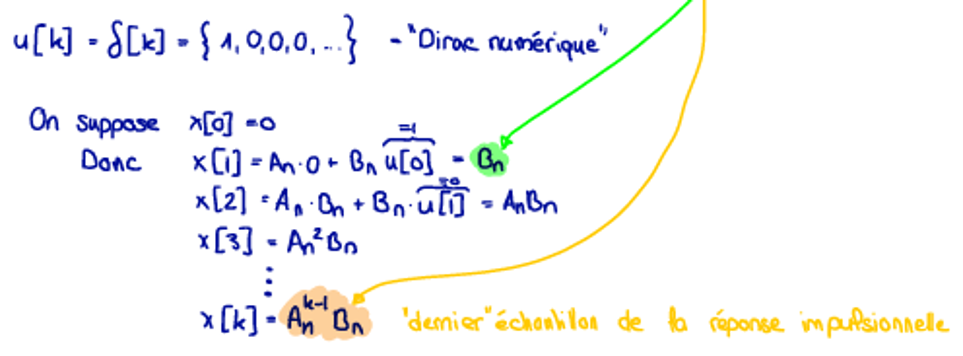 u[k] = δ[k] = { 1, 0, 0, 0, ...} - "Dirac numérique"
On suppose x[0] = 0
Donc x[1] = An · 0 + Bn u[0] = Bn
=1
x[2] = An · Bn + Bn · u[1] = AnBn
=0
x[3] = An²Bn
⋮
x[k] = An^k-1 Bn "dernier" échantillon de la réponse impulsionnelle